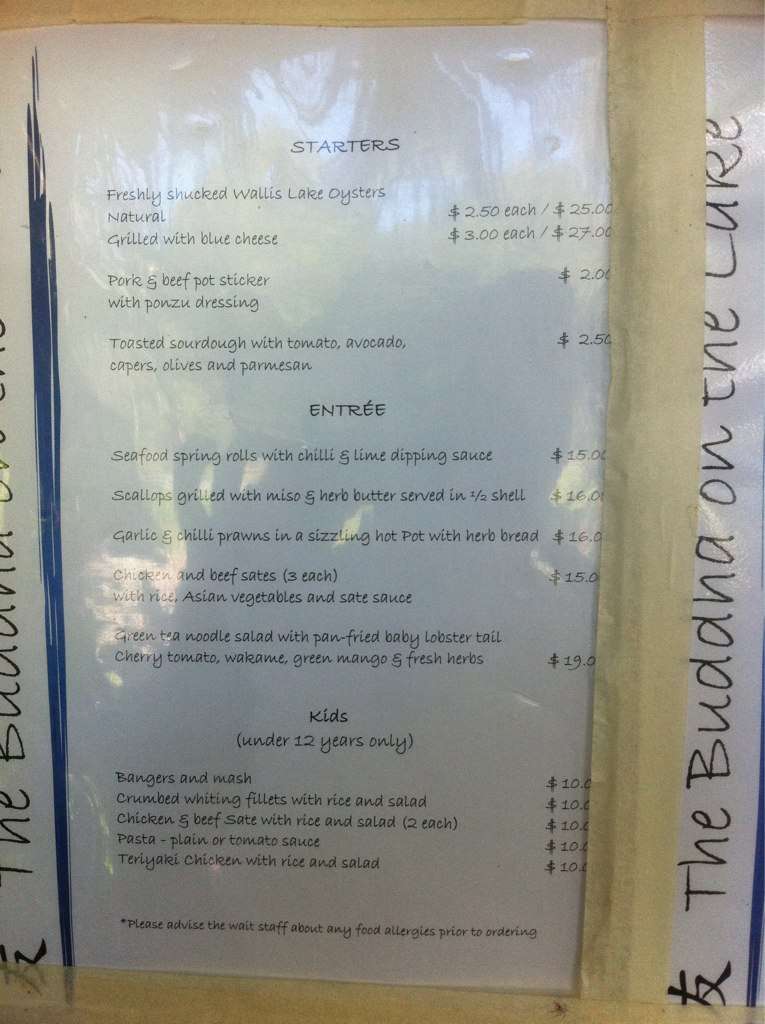 STARTERS
Freshly shucked Wallis Lake Oysters
Natural $ 2.50 each / $ 25.00
Grilled with blue cheese $ 3.00 each / $ 27.00
Pork & beef pot sticker $ 2.00
with ponzu dressing
Toasted sourdough with tomato, avocado, $ 2.50
capers, olives and parmesan
ENTRÉE
Seafood spring rolls with chilli & lime dipping sauce $ 15.00
Scallops grilled with miso & herb butter served in ½ shell $ 16.0
Garlic & chilli prawns in a sizzling hot Pot with herb bread $ 16.0
Chicken and beef sates (3 each) $ 15.0
with rice, Asian vegetables and sate sauce
Green tea noodle salad with pan-fried baby lobster tail
Cherry tomato, wakame, green mango & fresh herbs $ 19.0
Kids
(under 12 years only)
Bangers and mash $ 10.0
Crumbed whiting fillets with rice and salad $ 10.0
Chicken & beef Sate with rice and salad (2 each) $ 10.0
Pasta - plain or tomato sauce $ 10.0
Teriyaki Chicken with rice and salad $ 10.0
*Please advise the wait staff about any food allergies prior to ordering
友 The Buddha on the Lake
友 The Buddha on the